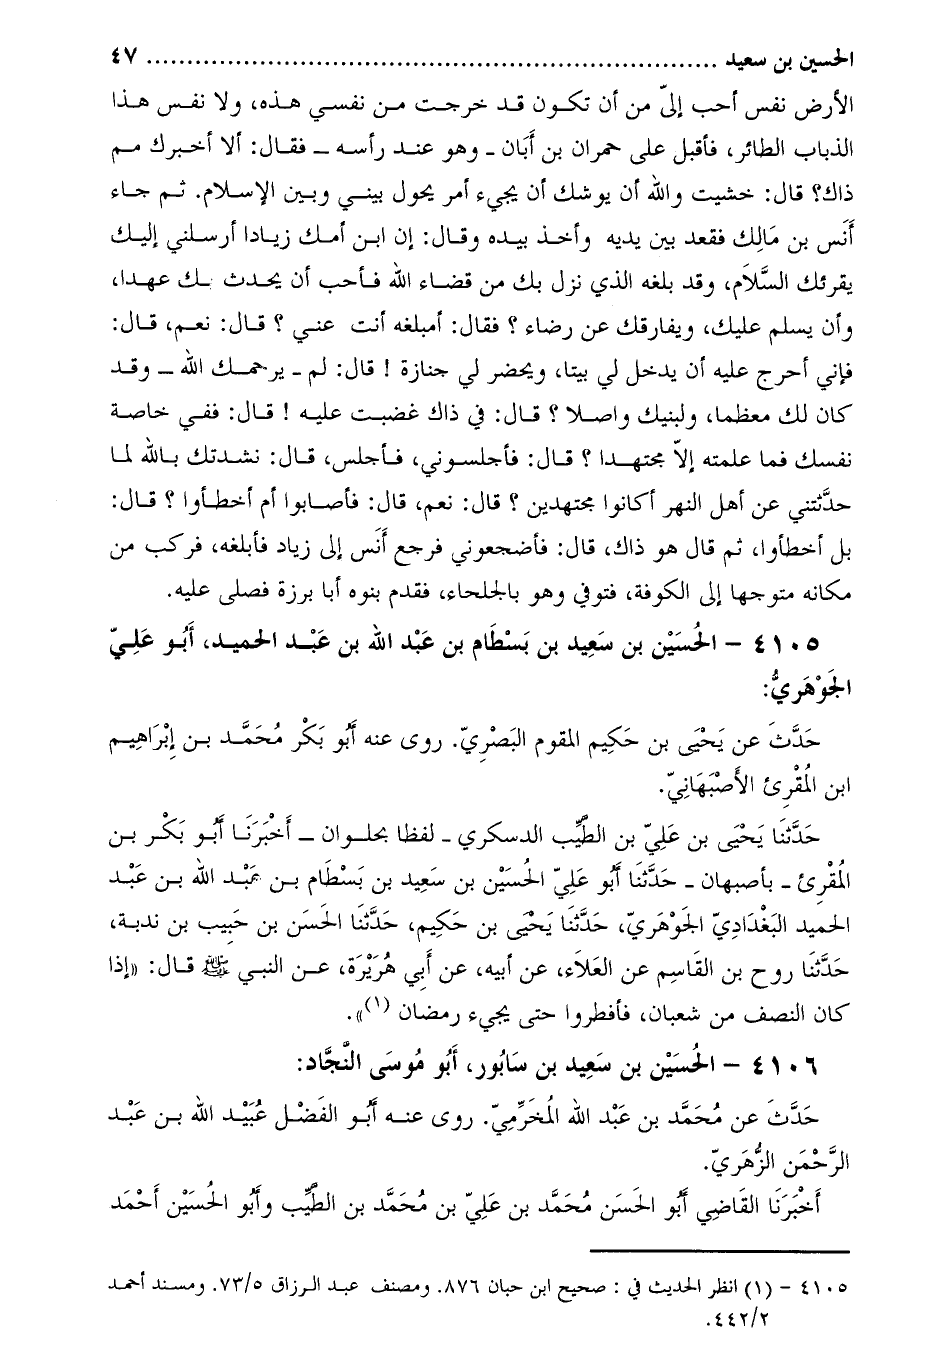 الحسين بن سعيد ................................................................ ٤٧
الأرض نفس أحب إليّ من أن تكون قد خرجت من نفسي هذه، ولا نفس هذا
الذباب الطائر، فأقبل على حمران بن أَبَان ـ وهو عند رأسه ـ فقال: ألا أخبرك مم
ذاك؟ قال: خشيت والله أن يوشك أن يجيء أمر يحول بيني وبين الإسلام. ثم جاء
أَنَس بن مَالِك فقعد بين يديه وأخذ بيده وقال: إن ابن أمك زيادا أرسلني إليك
يقرئك السَّلاَم، وقد بلغه الذي نزل بك من قضاء الله فأحب أن يحدث بك عهدا،
وأن يسلم عليك، ويفارقك عن رضاء ؟ فقال: أمبلغه أنت عني ؟ قال: نعم، قال:
فإني أحرج عليه أن يدخل لي بيتا، ويحضر لي جنازة ! قال: لم ـ يرحمك الله ـ وقد
كان لك معظما، ولبنيك واصلا ؟ قال: في ذاك غضبت عليه ! قال: ففي خاصة
نفسك فما علمته إلاّ مجتهدا ؟ قال: فأجلسوني، فأجلس، قال: نشدتك بالله لما
حدَّثتني عن أهل النهر أكانوا مجتهدين ؟ قال: نعم، قال: فأصابوا أم أخطأوا ؟ قال:
بل أخطأوا، ثم قال هو ذاك، قال: فأضجعوني فرجع أَنَس إلى زياد فأبلغه، فركب من
مكانه متوجها إلى الكوفة، فتوفي وهو بالجلحاء، فقدم بنوه أبا برزة فصلى عليه.
٤١٠٥ – الحُسَيْن بن سَعِيد بن بَسْطَام بن عَبْد الله بن عَبْد الحميد، أَبُو عَلِيّ
الجَوْهَرِيُّ:
حَدَّثَ عن يَحْيَى بن حَكِيم المقوم البَصْرِيّ. روى عنه أَبُو بَكْر مُحَمَّد بن إِبْرَاهِيم
ابن المُقْرِئ الأَصْبَهَانِيّ.
حَدَّثَنَا يَحْيَى بن عَلِيّ بن الطَّيِّب الدسكري ـ لفظا بحلوان ـ أَخْبَرَنَا أَبُو بَكْر بن
المُقْرِئ ـ بأصبهان ـ حَدَّثَنَا أَبُو عَلِيّ الحُسَيْن بن سَعِيد بن بَسْطَام بن عَبْد الله بن عَبْد
الحميد البَغْدَادِيّ الجَوْهَرِيّ، حَدَّثَنَا يَحْيَى بن حَكِيم، حَدَّثَنَا الحَسَن بن حَبِيب بن ندبة،
حَدَّثَنَا روح بن القَاسِم عن العَلَاء، عن أبيه، عن أَبِي هُرَيْرَة، عن النبي ﷺ قال: «إذا
كان النصف من شعبان، فأفطروا حتى يجيء رمضان (١)».
٤١٠٦ – الحُسَيْن بن سَعِيد بن سَابُور، أَبُو مُوسَى النَّجَّاد:
حَدَّثَ عن مُحَمَّد بن عَبْد الله المُخَرِّمِيّ. روى عنه أَبُو الفَضْل عُبَيْد الله بن عَبْد
الرَّحْمَن الزُّهَرِيّ.
أَخْبَرَنَا القَاضِي أَبُو الحَسَن مُحَمَّد بن عَلِيّ بن مُحَمَّد بن الطَّيِّب وأَبُو الحُسَيْن أَحْمَد
٤١٠٥ – (١) انظر الحديث في : صحيح ابن حبان ٨٧٦. ومصنف عبد الرزاق ٧٣/٥. ومسند أحمد
٤٤٢/٢.